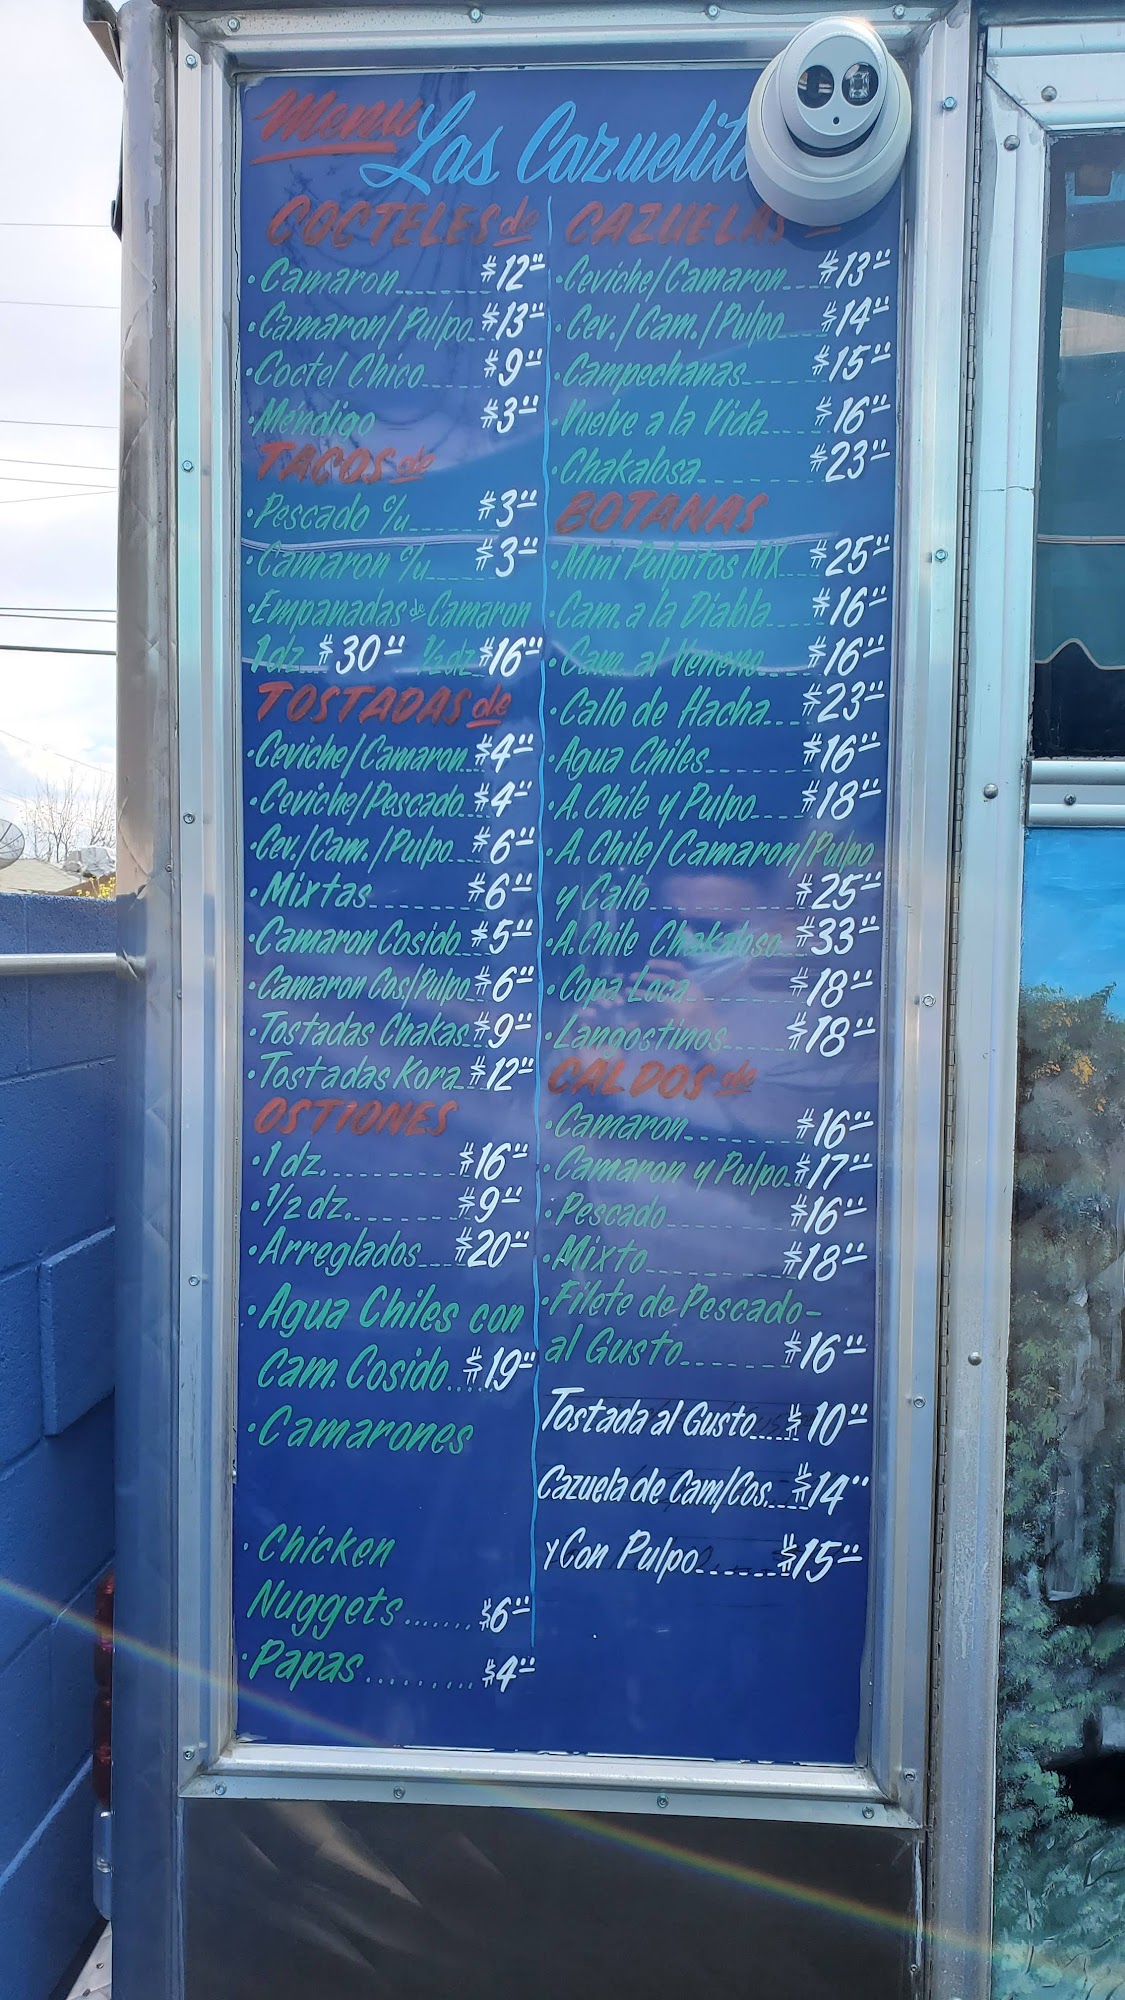 Menu Las Cazuelit
COCTELES de
• Camaron $12"
• Camaron/Pulpo $13"
• Coctel Chico $9"
• Mendigo $3"
TACOS de
• Pescado c/u $3"
• Camaron c/u $3"
• Empanadas de Camaron
1 dz $30" ½ dz $16"
TOSTADAS de
• Ceviche/Camaron $4"
• Ceviche/Pescado $4"
• Cev./Cam./Pulpo $6"
• Mixtas $6"
• Camaron Cosido $5"
• Camaron Cos/Pulpo $6"
• Tostadas Chakas $9"
• Tostadas Kora $12"
OSTIONES
• 1 dz. $16"
• 1/2 dz. $9"
• Arreglados $20"
• Agua Chiles con
Cam. Cosido $19"
• Camarones
• Chicken
Nuggets $6"
• Papas $4"
CAZUELAS
• Ceviche/Camaron $13"
• Cev./Cam./Pulpo $14"
• Campechanas $15"
• Vuelve a la Vida $16"
• Chakalosa $23"
BOTANAS
• Mini Pulpitos MX $25"
• Cam. a la Diabla $16"
• Cam. al Veneno $16"
• Callo de Hacha $23"
• Agua Chiles $16"
• A. Chile y Pulpo $18"
• A. Chile/Camaron/Pulpo
y Callo $25"
• A. Chile Chakaloso $33"
• Copa Loca $18"
• Langostinos $18"
CALDOS de
• Camaron $16"
• Camaron y Pulpo $17"
• Pescado $16"
• Mixto $18"
• Filete de Pescado-
al Gusto $16"
Tostada al Gusto $10"
Cazuela de Cam/Cos. $14"
y Con Pulpo $15"